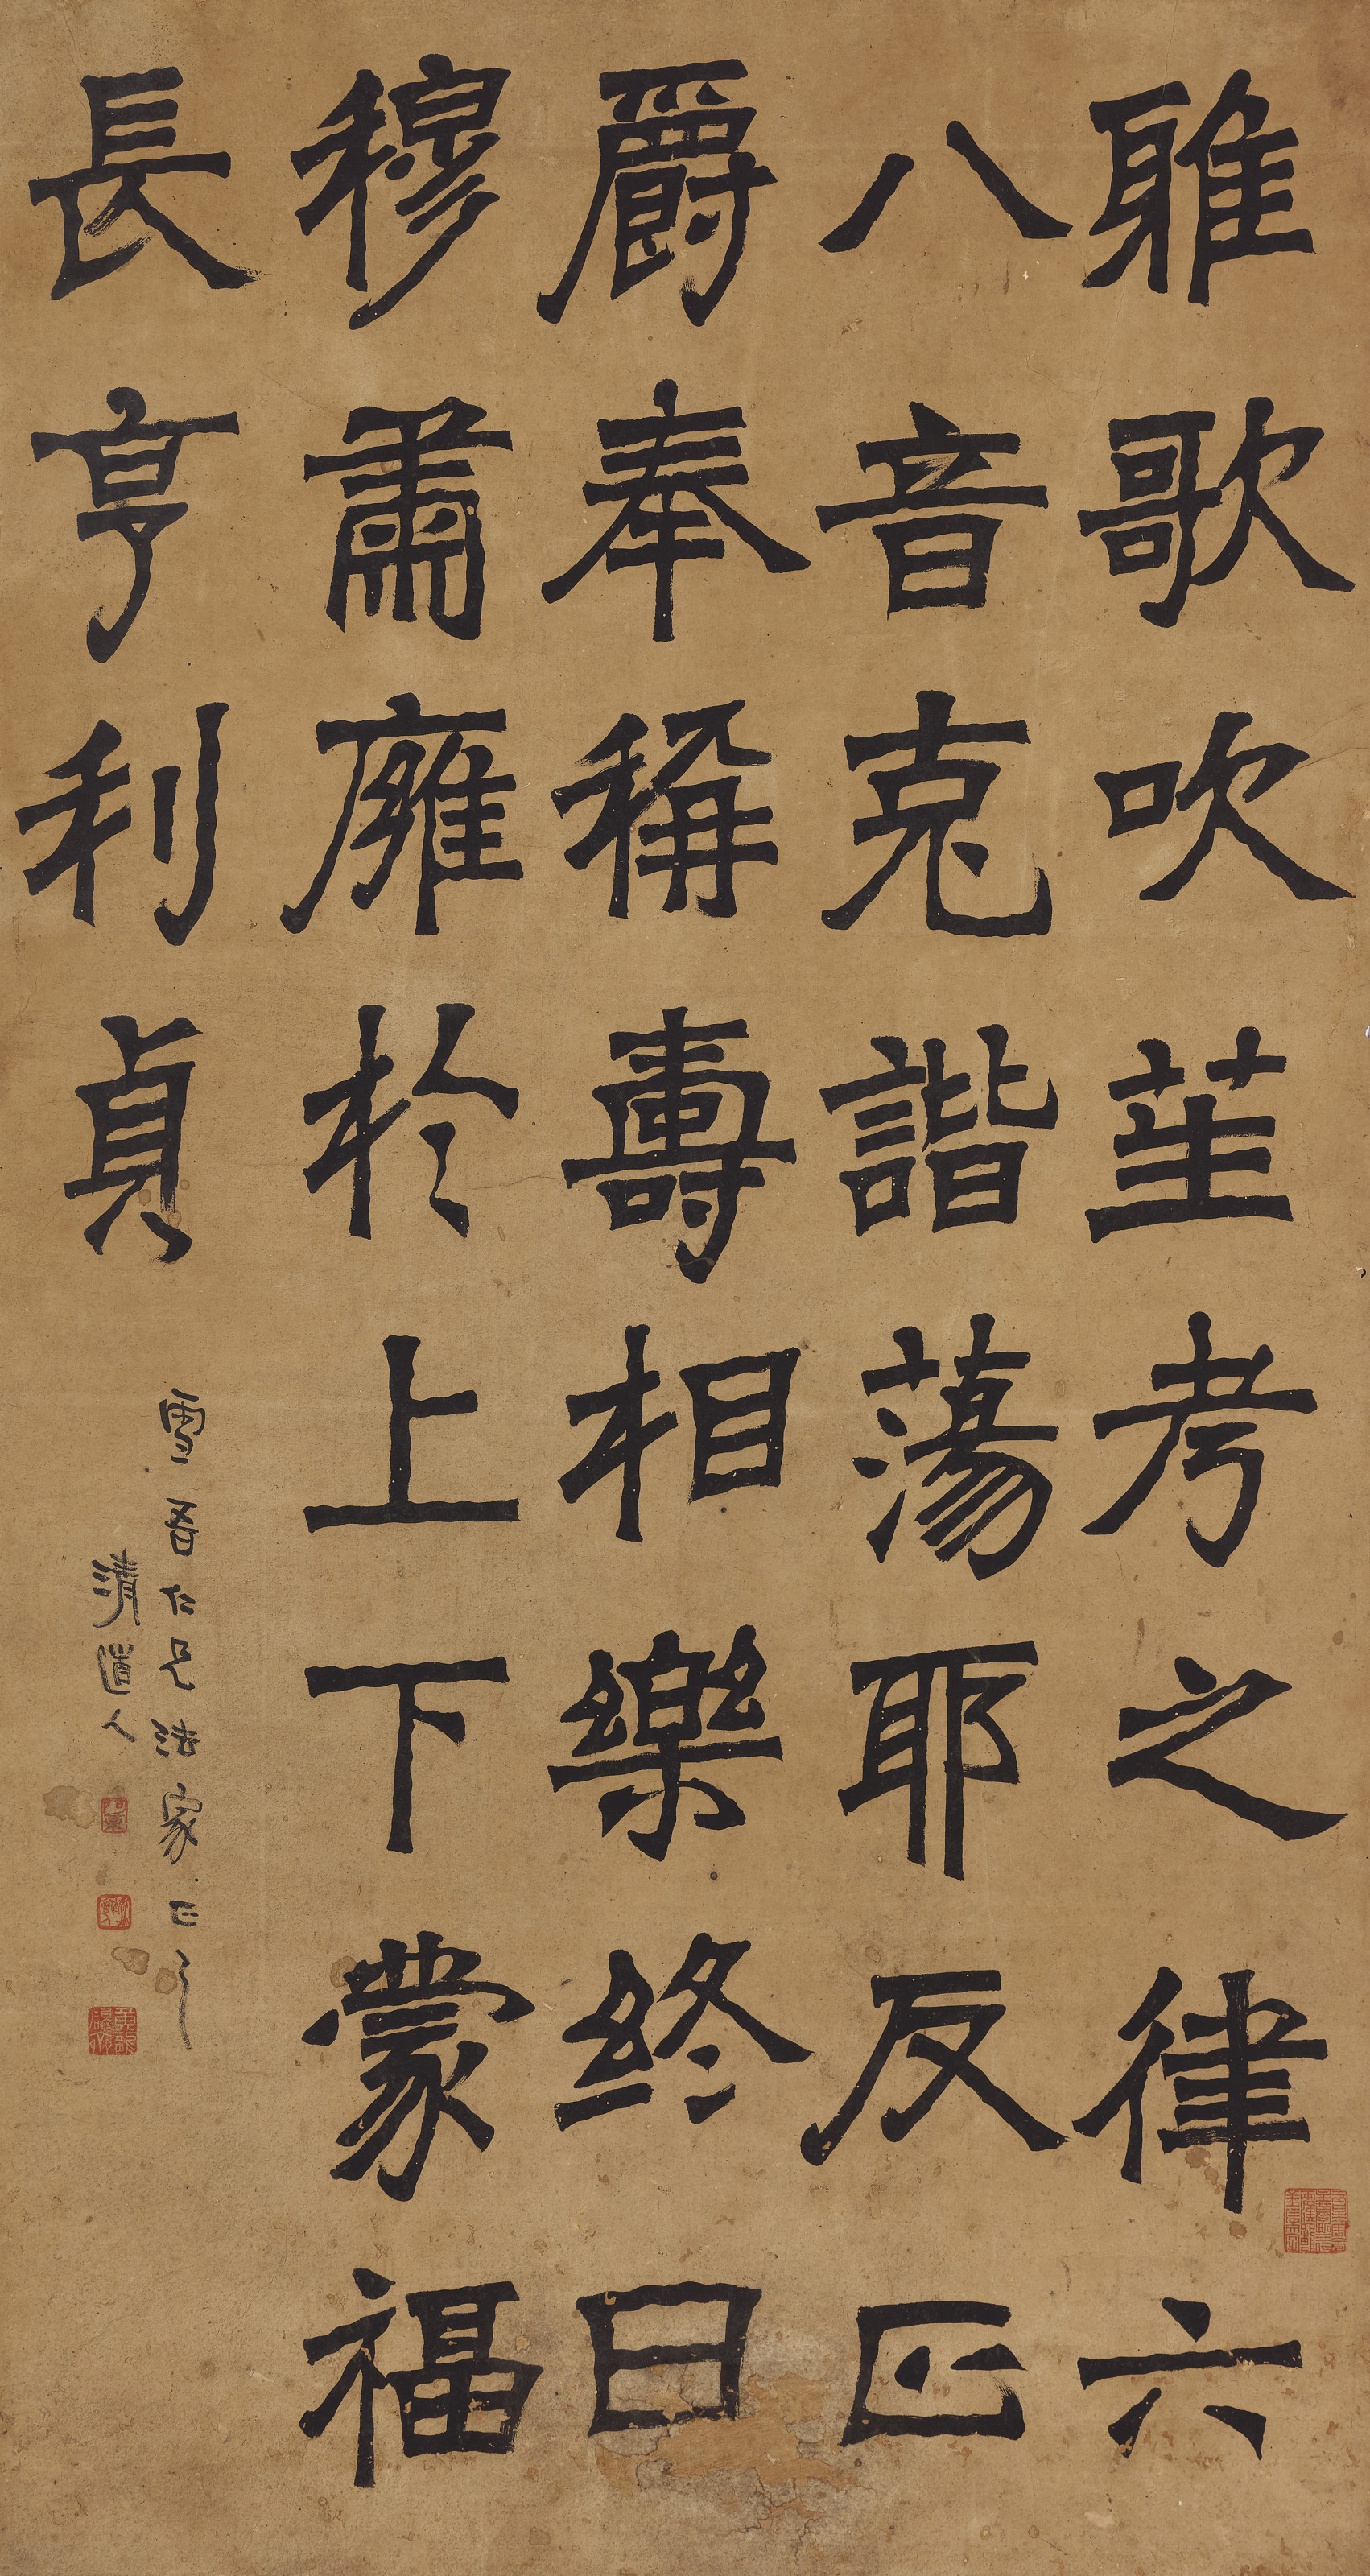 雅歌吹笙考之律六
八音克諧蕩耶反正
爵奉稱壽相樂終日
穆肅廱於上下蒙福
長享利貞
雪吾仁兄法家正之
清道人